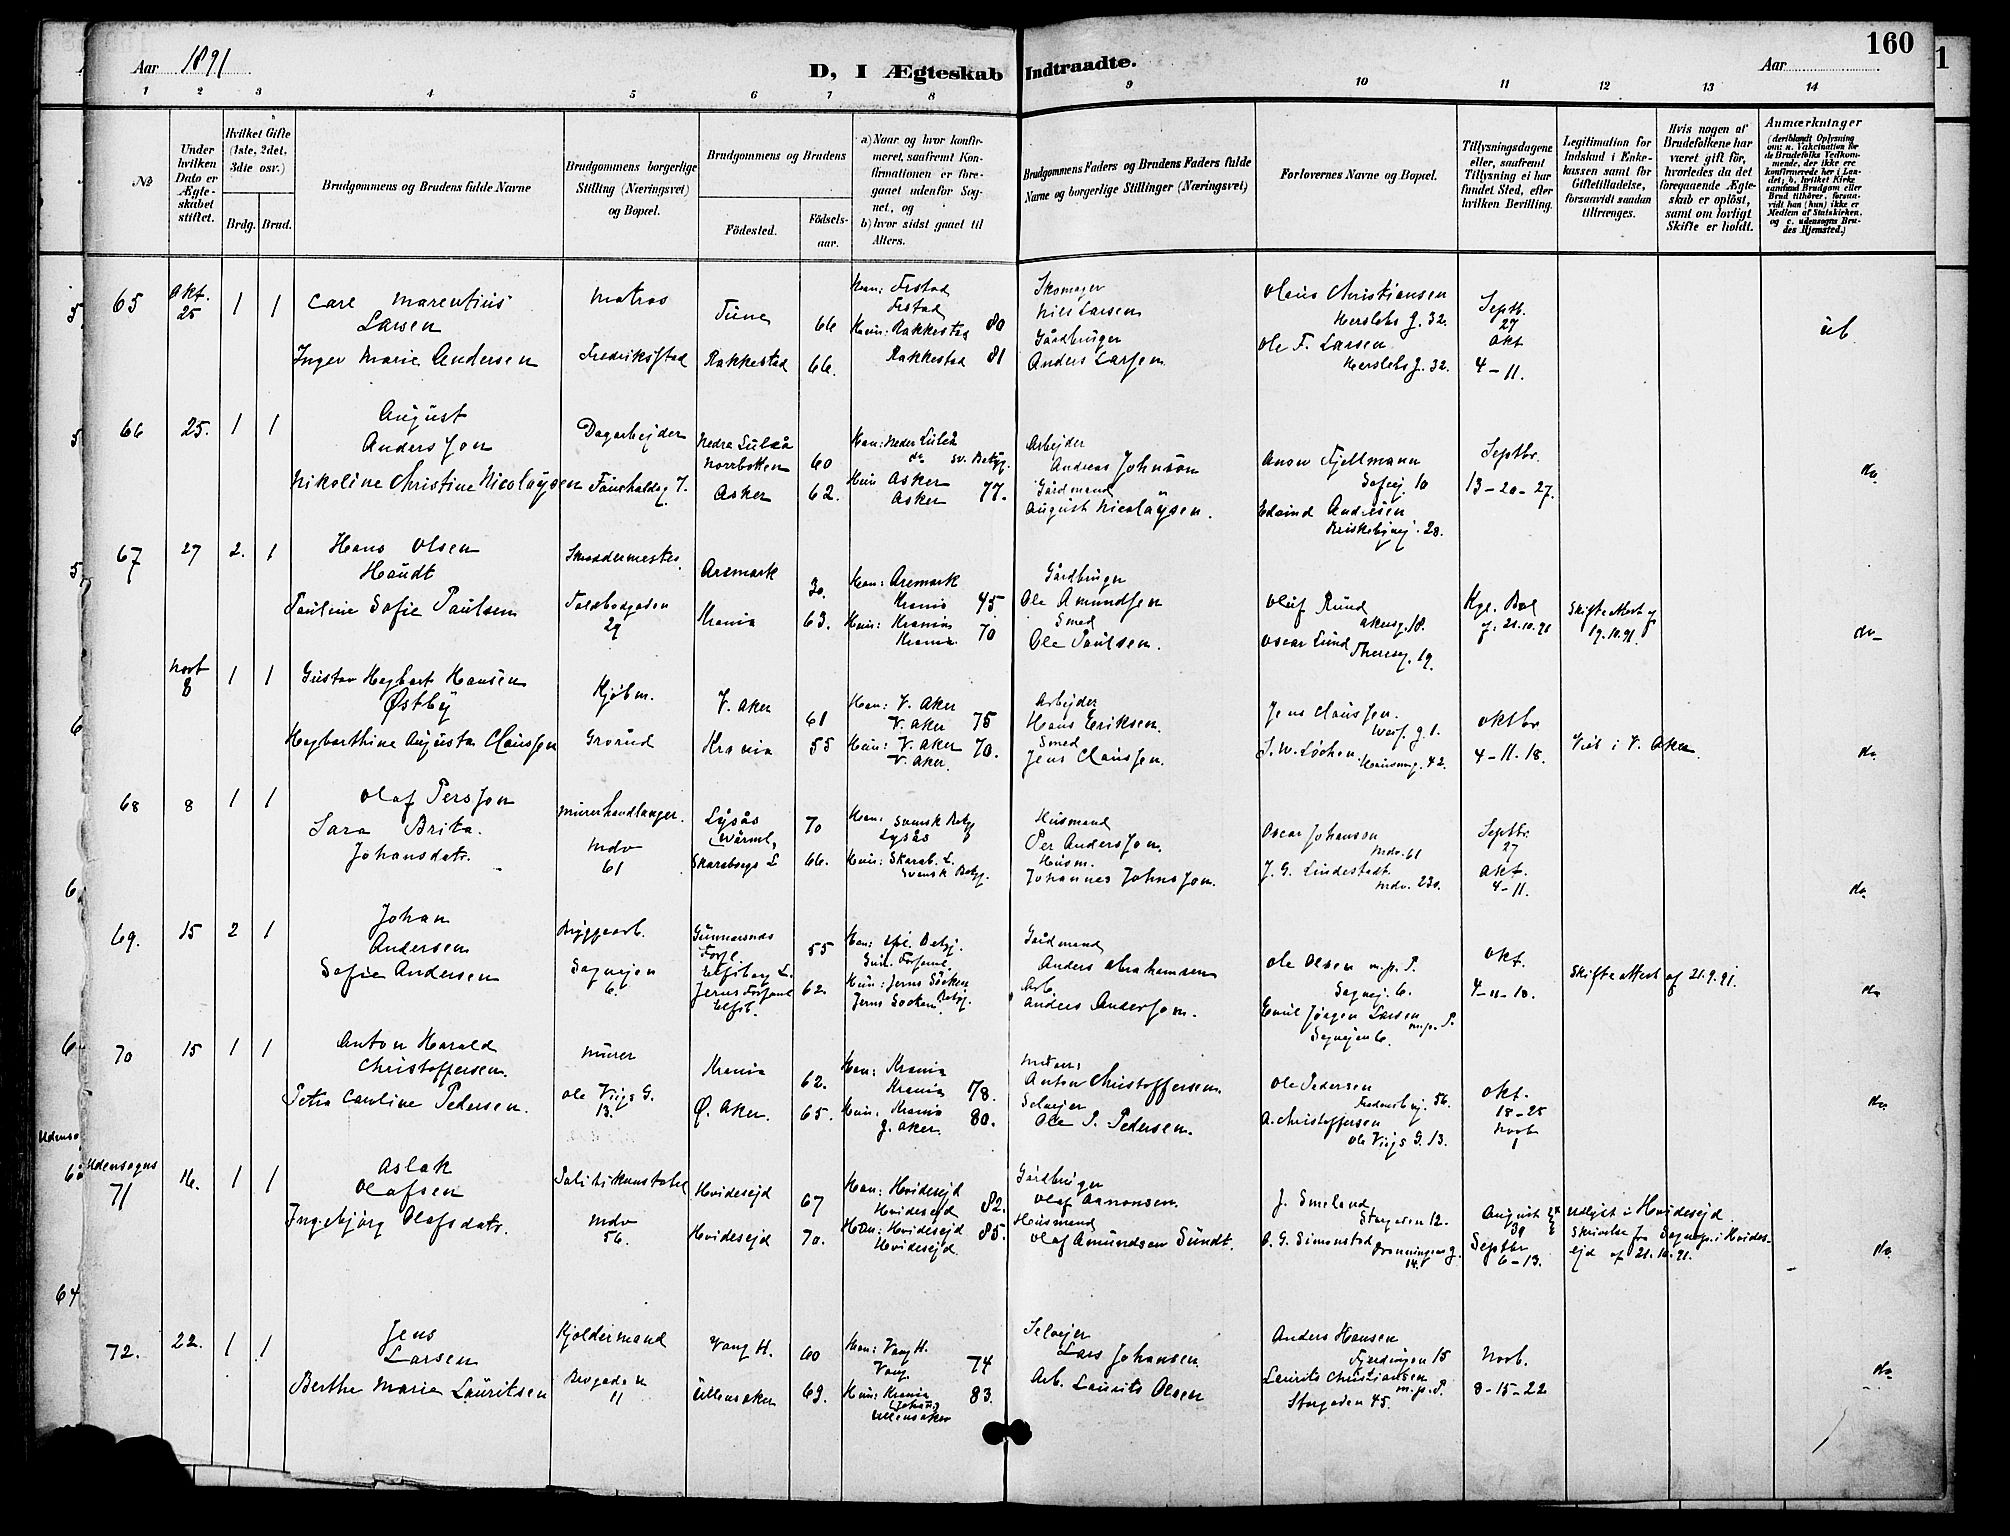 160
Aar 1891
D, I Ægteskab Indtraadte.
Aar
1 2 3 4 5 6 7 8 9 10 11 12 13 14
No
Under hvilken Dato er Ægteskabet stiftet.
Hvilket Gifte (1ste, 2det, 3die osv.)
Brdg. Brud.
Brudgommens og Brudens fulde Navne
Brudgommens borgerlige Stilling (Næringsvei) og Bopæl.
Brudgommens og Brudens
Fødested.
Fødsels-aar.
a) Naar og hvor konfirmeret, saafremt Konfirmationen er foregaaet udenfor Sognet, og
b) hvor sidst gaaet til Alters.
Brudgommens Faders og Brudens Faders fulde Navne og borgerlige Stillinger (Næringsvei)
Forlovernes Navne og Bopæl.
Tillysningsdagene eller, saafremt Tillysning ei har fundet Sted, efter hvilken Bevilling.
Legitimation for Indskud i Enkekassen samt for Giftetilladelse, forsaavidt saadan tiltrænges.
Hvis nogen af Brudefolkene har været gift før, hvorledes da det foregaaende Ægteskab er opløst, samt om lovligt Skifte er holdt.
Anmærkninger
(deriblandt Oplysning om: a. Vakcination for de Brudefolks Vedkommende, der ikke ere konfirmerede her i Landet; b. hvilket Kirkesamfund Brudgom eller Brud tilhører, forsaavidt han (hun) ikke er Medlem af Statskirken, og c. udensogns Brudes Hjemsted.)
65 Okt. 25 1 1
Carl Marentius Larsen
Inger Marie Andersen
Matros
Fredrikstad
Tune 66
Rakkestad 66.
Han: Rakkestad 80
Rakkestad 81
Skomager
Nils Larsen
Gårdbruger
Anders Larsen
Olaus Christiansen
Herslebs g. 32.
Ole F. Larsen
Herslebs g. 32.
Septb. 27
Okt
4 - 11.
66 25. 1 1
August Andersson
Nikoline Christine Nicolaysen
Dagarbejder
Nedre Luleå
Norrbotten 60
Asker 62.
Han: Neder Luleå
do sv. Betyg.
Hun Asker
Asker 77.
Arbejder
Andreas Johnson
Gårdmand
August Nicolaysen.
Fjellmann
10
Edvind Andresen
Briskebyvej. 28.
Septbr.
13-20-27.
do.
67 27 2. 1
Hans Olsen Haudt
Pauline Sofie Paulsen
Skræddermester
Toldbodgaden 29
Aremark 30.
Krania 63.
Han: Aremark
Krania 45
Hun: Krania
Krania 70
Gårdbruger
Ole Amundsen
Smed
Ole Paulsen.
Oluf Rund
Akersg. 18.
Oscar Lund
Theresg. 19.
Kgl. Bev.
21.10.91
Skifteattest af 19.10.91.
do
Novb 8 1 1
Gustav Hagbart Hansen Østby
Hagbarthine Augusta Claussen
Kjøbm.
Grorud
V. Aker 61
Krania 55
Han: V. Aker
V. Aker 75
Hun: V. Aker
V. Aker 70.
Arbejder
Hans Eriksen.
Smed
Jens Claussen.
Jens Claussen.
g. 1.
S. W. Løchen
Hausmansg. 42.
Oktbr
4-11-18.
Viet i V. Aker.
do.
68 8 1 1
Olaf Persson
Sara Brita Johansdatr.
Murerhandlanger.
Mdv 61
Lysås
(Wärml. 70
Skaraborgs L. 66.
Han: Svensk Betyg
Lysås
Hun: Skarab. L.
Svensk Betyg.
Husmand
Per Andersson.
Husm.
Johannes Johnsson.
Oscar Johanson
Mdv. 61
J. G. Lindestadt
Mdv. 230.
Septbr. 27
Okt. 4-11.
do.
69. 15 2 1
Johan Andersen
Sofie Andersen
Bryggearb.
Sagvejen 6.
Gunnarsnäs
Elfsborg L. 55
Elfsb. 62.
Gårdmand
Anders Abrahamsen
Arb.
Anders Andersson.
Ole Olsen m. p. P.
Sagvej. 6.
Emil Jørgen Larsen m. p. P.
Sagvejen 6.
Okt.
4-11-18.
Skifteattest af 21.9.91.
do
70 15 1 1
Anton Harald Christoffersen.
Petra Caroline Pedersen.
Murer
Ole Viigs G. 13.
Krania 62.
Ø. Aker. 65.
Han: Krania
Krania 78.
Hun: Krania
Ø. Aker. 80.
Murer:
Anton Christoffersen.
Selvejer
Ole P. Pedersen.
Ole Pedersen
Fredensbvj. 56.
A. Christoffersen
Ole Viigs G. 13.
Okt.
18-25
Novb 1
do.
Udensogns
71 16. 1 1
Aslak Olafsen
Ingebjörg Olafsdatr.
Politikonstabel
Mdv 56.
Hvidesejd 67
Hvidesejd 70.
Han: Hvidesejd
Hvidesejd 82.
Hun: Hvidesejd
Hvidesejd. 85.
Gårdbruger
Olaf Aanonsen.
Husmand
Olaf Amundsen Sundt.
J. Smeland
Storgaden 12.
O. G. Simonstad
Dronningens g. 14.
August 30
Septbr 6-13.
Udlyst i Hvidesejd.
Skrivelse fr. Sognep. i Hvidesejd af 21.10.91.
do.
72. 22. 1 1
Jens Larsen
Berthe Marie Lauritsen
Kjøldermand
Brogaden 11
Vang H. 60
Ullensaker 69.
Han: Vang H.
Vang. 74
Hun: Krania
(Johans)
Ullensaker 83.
Selvejer
Lars Johansen.
Arb. Laurits Olsen
Anders Hansen
Fjerdingen 15
Laurits Christiansen m. p. P.
Storgaden 45.
Novb.
8-15-22
do.